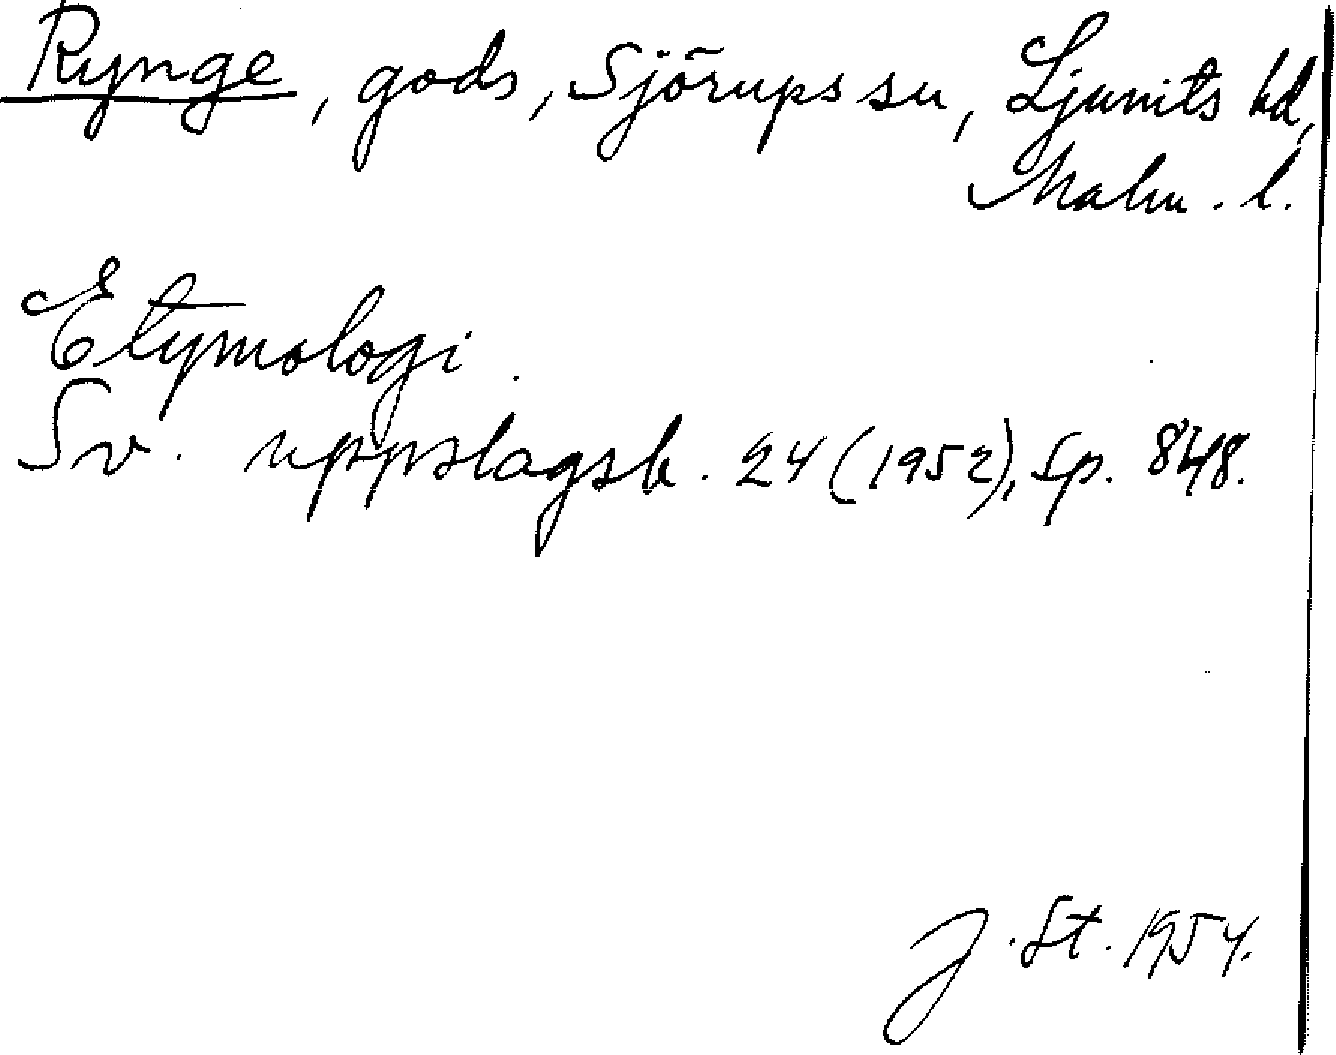 Rynge, gods, Sjörups sn, Ljunits hd,
Malm. l.
Etymologi.
Sv. uppslagsb. 24 (1952), sp. 848.
J. St. 1954.